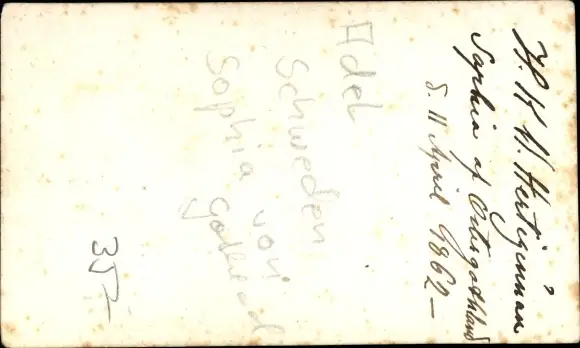 H. K. H. Hertiginnan
Sophia af Östergöthland
d. 11 April 1862 —
Adel
Schweden
Sophia von
Gothland
35,-